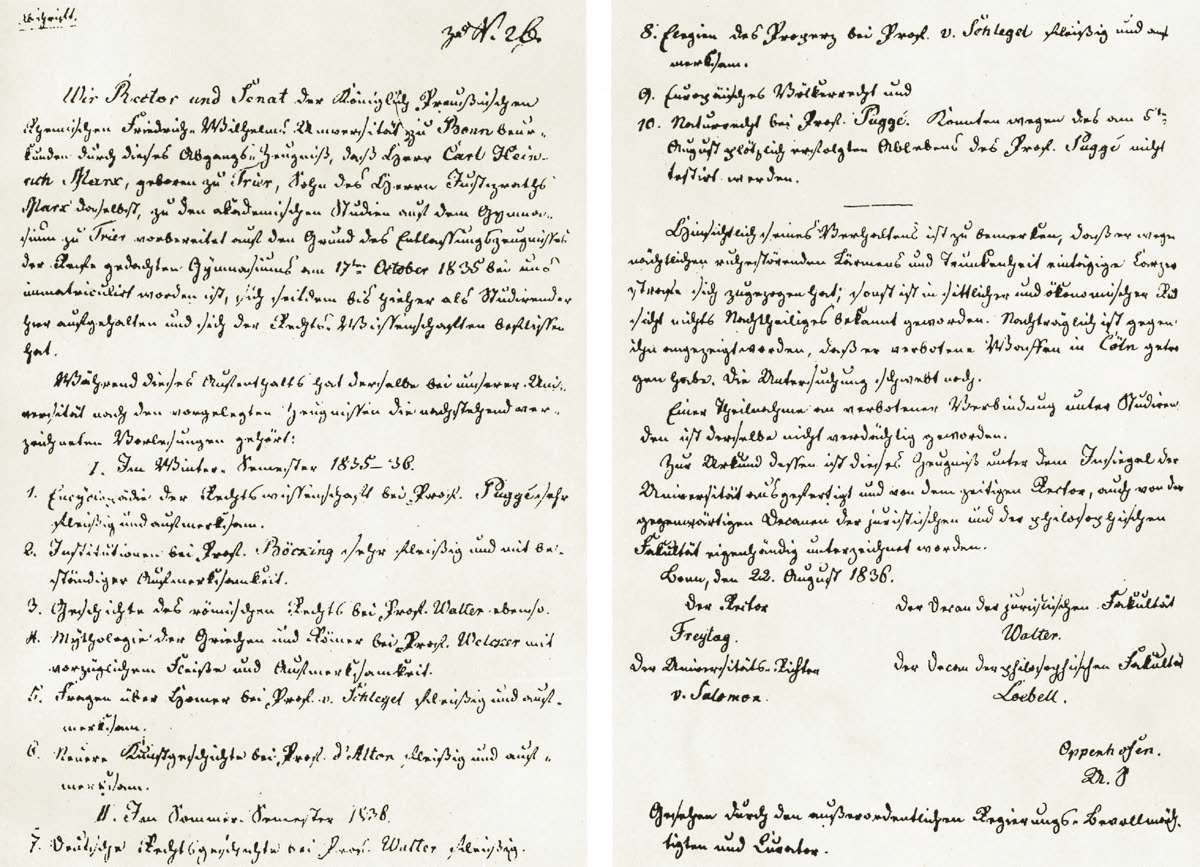 Abschrift.
zu N. 26.
Wir Rector und Senat der Königlich Preußischen
Rheinischen Friedrich-Wilhelms Universität zu Bonn beur-
kunden durch dieses Abgangs-Zeugniß, daß Herr Carl Hein-
rich Marx, geboren zu Trier, Sohn des Herrn Justizraths
Marx daselbst, zu den akademischen Studien auf dem Gymna-
sium zu Trier vorbereitet auf den Grund des Entlassungszeugnisses
der Reife gedachten Gymnasiums am 17ten October 1835 bei uns
immatriculirt worden ist, sich seitdem bis hieher als Studirender
hier aufgehalten und sich der Rechts-Wissenschaften beflissen
hat.
Während dieses Aufenthalts hat derselbe bei unserer Uni-
versität nach den vorgelegten Zeugnissen die nachstehend ver-
zeichneten Vorlesungen gehört:
I. Im Winter-Semester 1835-36.
1. Encyclopädie der Rechtswissenschaft bei Prof. Puggé sehr
fleißig und aufmerksam.
2. Institutionen bei Prof. Böcking sehr fleißig und mit be-
ständiger Aufmerksamkeit.
3. Geschichte des römischen Rechts bei Prof. Walter ebenso.
4. Mythologie der Griechen und Römer bei Prof. Welcker mit
vorzüglichem Fleiße und Aufmerksamkeit.
5. Fragen über Homer bei Prof. v. Schlegel fleißig und auf-
merksam.
6. Neuere Kunstgeschichte bei Prof. d'Alton fleißig und auf-
merksam.
II. Im Sommer-Semester 1836.
7. Deutsche Rechtsgeschichte bei Prof. Walter fleißig.
8. Elegien des Properz bei Prof. v. Schlegel fleißig und auf
merksam.
9. Europäisches Völkerrecht und
10. Naturrecht bei Prof. Puggé. Konnten wegen des am 5ten
August plötzlich erfolgten Ablebens des Prof. Puggé nicht
testirt werden.
Hinsichtlich seines Verhaltens ist zu bemerken, daß er wegen
nächtlichen ruhestörenden Lärmens und Trunkenheit eintägige Carzer
strafe sich zugezogen hat; sonst ist in sittlicher und ökonomischer Rück
sicht nichts Nachtheiliges bekannt geworden. Nachträglich ist gegen
ihn angezeigt worden, daß er verbotene Waffen in Cöln getra
gen habe. Die Untersuchung schwebt noch.
Einer Theilnahme an verbotener Verbindung unter Studiren
den ist derselbe nicht verdächtig geworden.
Zur Urkund dessen ist dieses Zeugniß unter dem Insiegel der
Universität ausgefertigt und von dem zeitigen Rector, auch von den
gegenwärtigen Decanen der juristischen und der philosophischen
Fakultät eigenhändig unterzeichnet worden.
Bonn, den 22. August 1836.
Der Rector
Der Decan der juristischen Fakultät
Freytag.
Walter.
Der Universitäts-Richter
Der Decan der philosophischen Fakultät
v. Salomon.
Loebell.
Oppenhofen.
Gesehen durch den außerordentlichen Regierungs-Bevollmäch
tigten und Curator.